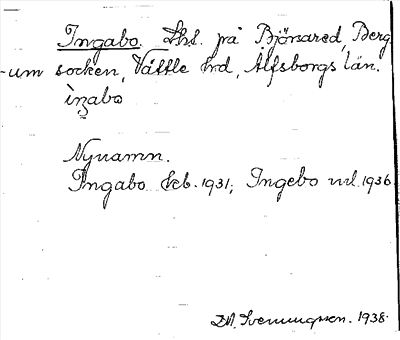 Ingabo. Lht. på Björsared, Berg
-um socken, Vättle hrd, Älfsborgs län.
ìŋabo
Nynamn.
Ingabo kb. 1931; Ingebo ml. 1936.
D.A. Svenningsson. 1938.